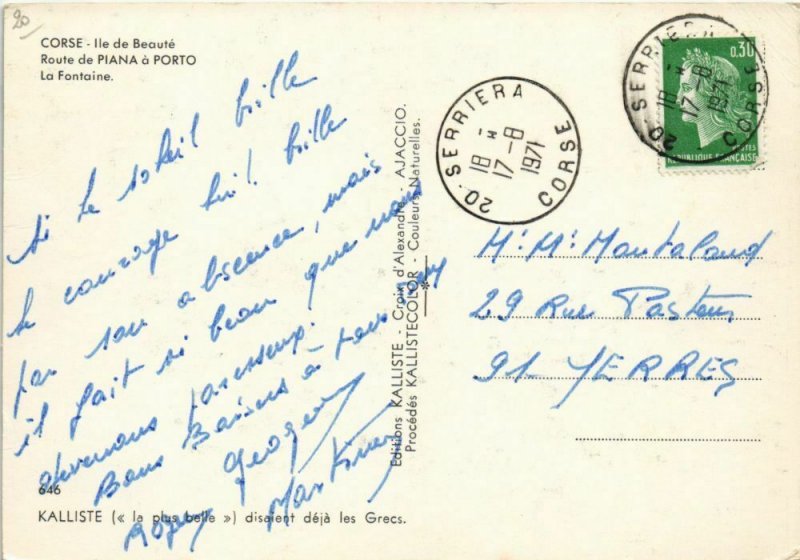 20
CORSE - Ile de Beauté
Route de PIANA à PORTO
La Fontaine.
Si le soleil brille
le courage lui brille
par son absence, mais
il fait si beau que nous
devenons paresseux.
Bons Baisers à tous
Georges
Roger Martine
646
KALLISTE (« la plus belle ») disaient déjà les Grecs.
Editions KALLISTE - Croix d'Alexandre - AJACCIO.
Procédés KALLISTECOLOR - Couleurs Naturelles.
20 SERRIERA
18 H
17-8
1971
CORSE
0,30
POSTES
REPUBLIQUE FRANÇAISE
20 SERRIERA
18 H
17-8
1971
CORSE
Mr Mme
29 Rue Pasteur
91 YERRES